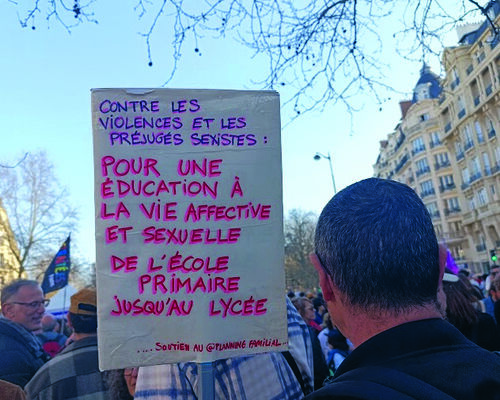 CONTRE LES
VIOLENCES ET LES
PRÉJUGÉS SEXISTES :
POUR UNE
ÉDUCATION À
LA VIE AFFECTIVE
ET SEXUELLE
DE L'ÉCOLE
PRIMAIRE
JUSQU'AU LYCÉE
.... SOUTIEN AU @PLANNING FAMILIAL...